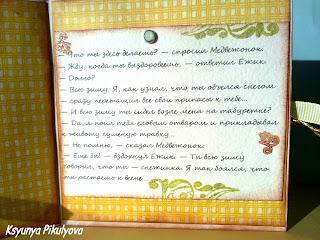 — Что ты здесь делаешь? — спросил Медвежонок.
— Жду, когда ты выздоровеешь, — ответил Ёжик.
— Долго?
— Всю зиму. Я, как узнал, что ты объелся снегом
сразу перетащил все свои припасы к тебе...
— И всю зиму ты сидел возле меня на табуретке?
— Да, я поил тебя еловым отваром и прикладывал
к животу сушёную травку...
— Не помню, — сказал Медвежонок.
— Ещё бы! — вздохнул Ёжик. — Ты всю зиму
говорил, что ты — снежинка. Я так боялся, что
ты растаешь к весне...
Ksyunya Pikulyova